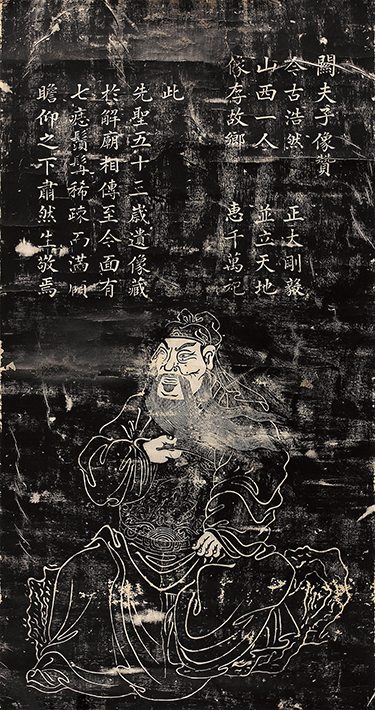 關夫子像贊
今古浩然 正大剛毅
山西一人 並立天地
像存故鄉 惠千萬祀
此
先聖五十三歲遺像藏
於解廟相傳至今面有
七痣鬚髯稀疎滿
瞻仰之下肅然生敬焉